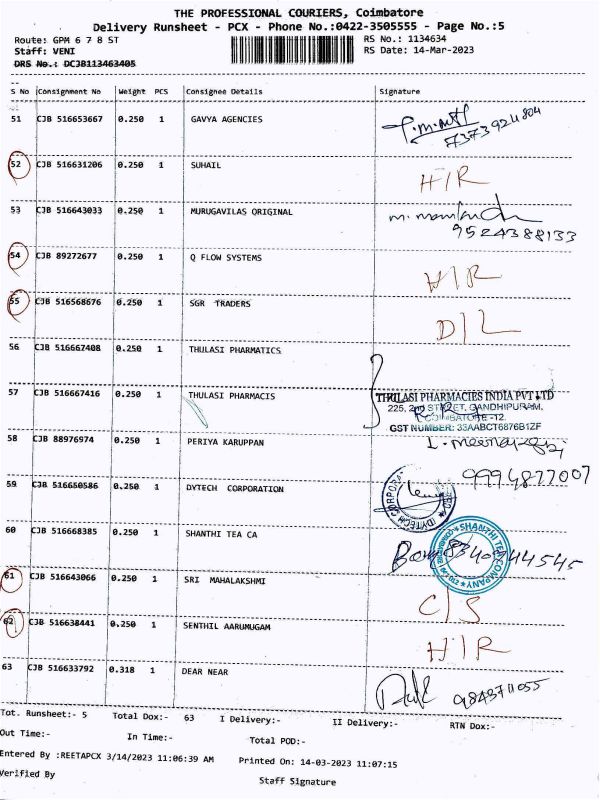 THE PROFESSIONAL COURIERS, Coimbatore
Delivery Runsheet - PCX - Phone No.:0422-3505555 - Page No.:5
Route: GPM 6 7 8 ST RS No.: 1134634
Staff: VENI RS Date: 14-Mar-2023
DRS No.: DCJB113463405
S No Consignment No Weight PCS Consignee Details Signature
51 CJB 516653667 0.250 1 GAVYA AGENCIES
7373924804
52 CJB 516631206 0.250 1 SUHAIL H/R
53 CJB 516643033 0.250 1 MURUGAVILAS ORIGINAL
9524388133
54 CJB 89272677 0.250 1 Q FLOW SYSTEMS H/R
55 CJB 516568676 0.250 1 SGR TRADERS D/L
56 CJB 516667408 0.250 1 THULASI PHARMATICS
57 CJB 516667416 0.250 1 THULASI PHARMACIS THULASI PHARMACIES INDIA PVT LTD
225, 2nd STREET, GANDHIPURAM,
COIMBATORE -12.
GST NUMBER: 33AABCT6876B1ZF
58 CJB 88976974 0.250 1 PERIYA KARUPPAN
9994877007
59 CJB 516650586 0.250 1 DYTECH CORPORATION DYTECH CORPORA
60 CJB 516668385 0.250 1 SHANTHI TEA CA SHANTHI TEA COMPANY
61 CJB 516643066 0.250 1 SRI MAHALAKSHMI C/S
62 CJB 516638441 0.250 1 SENTHIL AARUMUGAM H/R
63 CJB 516633792 0.318 1 DEAR NEAR 9843711055
Tot. Runsheet:- 5 Total Dox:- 63 I Delivery:- II Delivery:- RTN Dox:-
Out Time:- In Time:- Total POD:-
Entered By :REETAPCX 3/14/2023 11:06:39 AM Printed On: 14-03-2023 11:07:15
Verified By Staff Signature